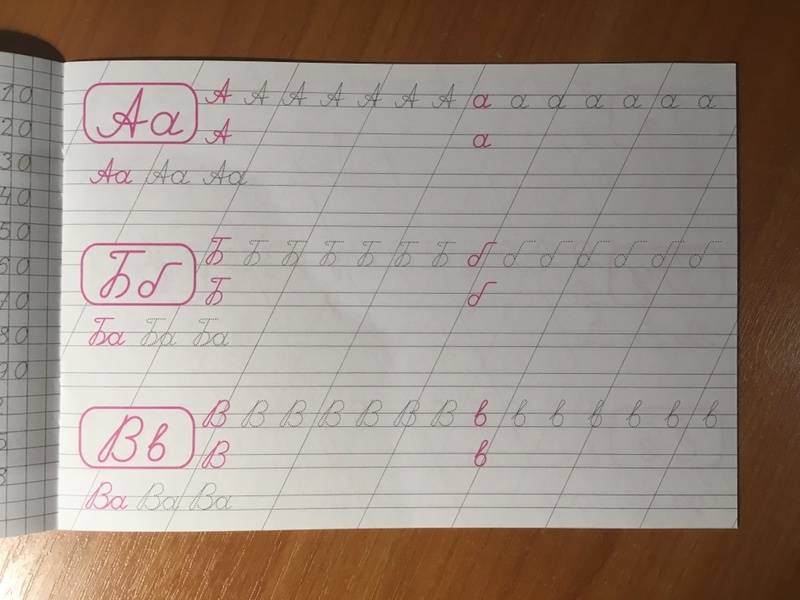 10
20
30
40
50
60
70
80
90
Аа
А А А А А А А а а а а а а а
А а
Аа Аа Аа
Бб
Б Б Б Б Б Б Б б б б б б б б
Б б
Ба Ба Ба
Вв
В В В В В В В в в в в в в в
В в
Ва Ва Ва